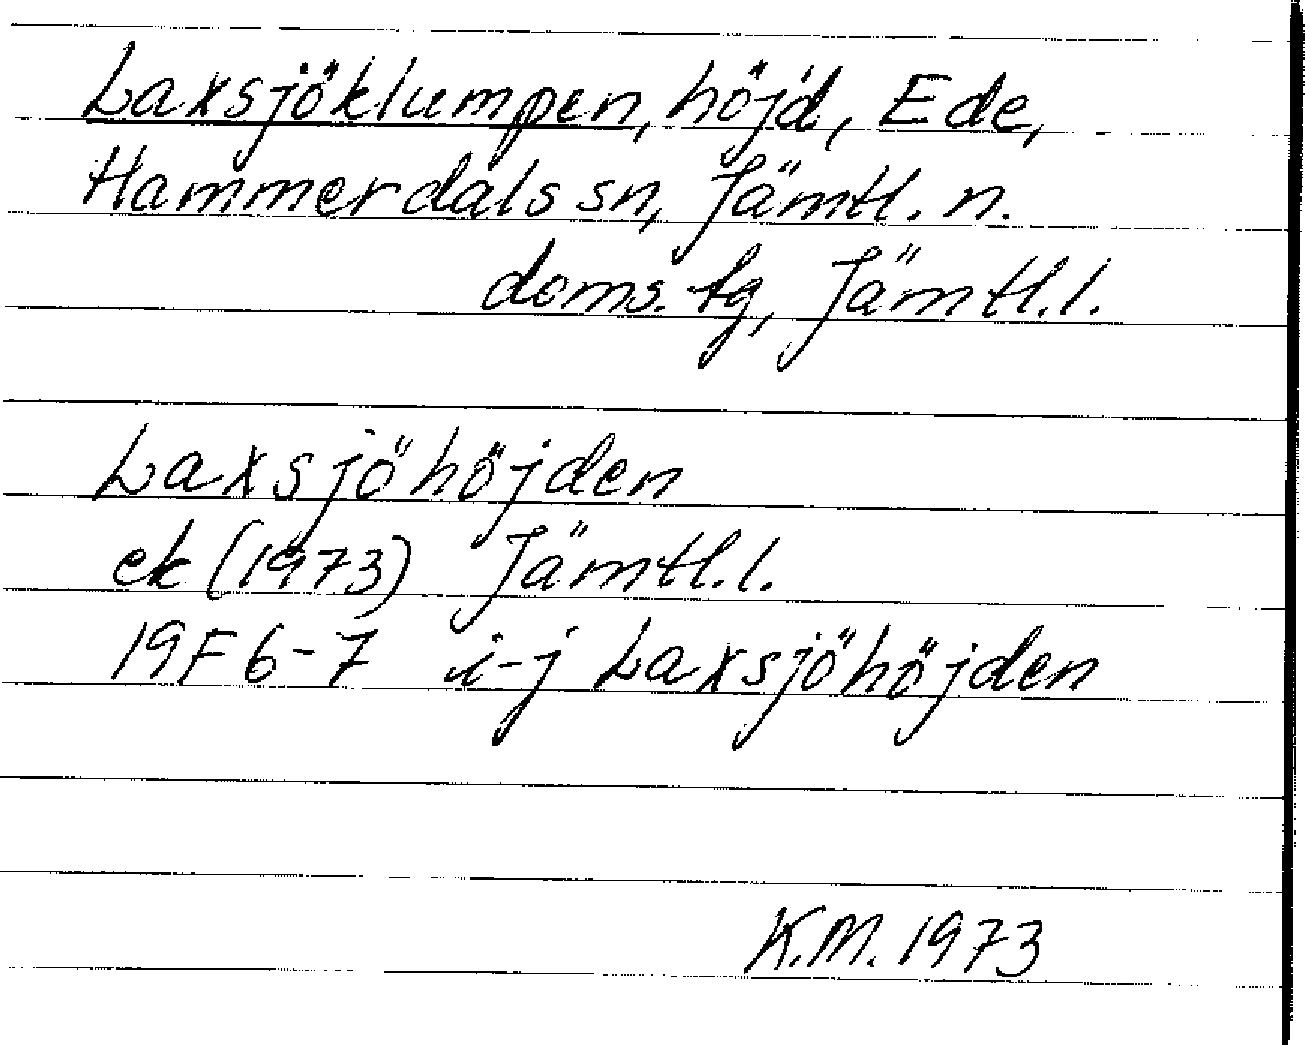 Laxsjöklumpen, höjd, Ede,
Hammerdals sn, Jämtl. n.
doms. tg, Jämtl. l.
Laxsjöhöjden
ek (1973) Jämtl. l.
19F 6-7 i-j Laxsjöhöjden
K.M. 1973